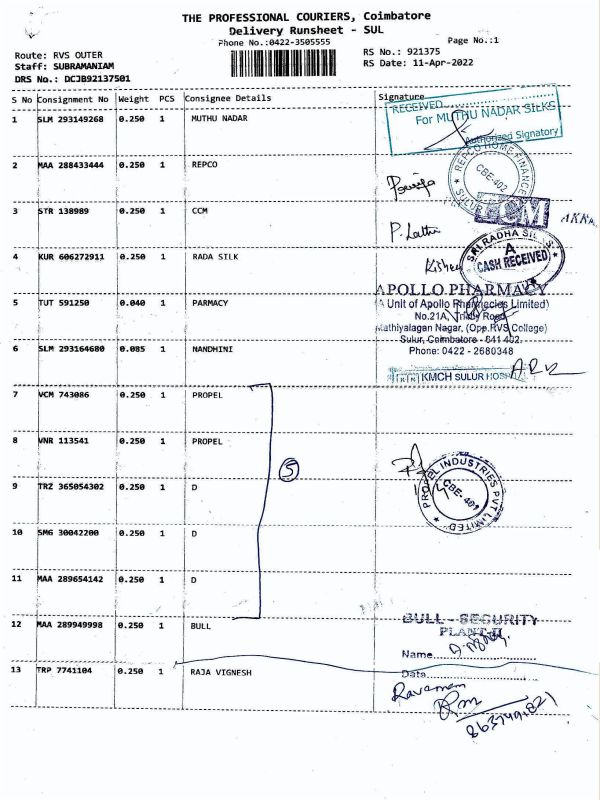 THE PROFESSIONAL COURIERS, Coimbatore
Delivery Runsheet - SUL
Phone No.:0422-3505555
Page No.:1
Route: RVS OUTER
RS No.: 921375
Staff: SUBRAMANIAM
RS Date: 11-Apr-2022
DRS No.: DCJB92137501
S No Consignment No Weight PCS Consignee Details Signature
1 SLM 293149268 0.250 1 MUTHU NADAR
RECEIVED
For MUTHU NADAR SILKS
Authorized Signatory
2 MAA 288433444 0.250 1 REPCO
REPCO HOME FINANCE
CBE-402
SULUR
3 STR 138989 0.250 1 CCM
CCM
P. Latha
4 KUR 606272911 0.250 1 RADA SILK
SRI RADHA SILKS
CASH RECEIVED
5 TUT 591250 0.040 1 PARMACY
APOLLO PHARMACY
(A Unit of Apollo Pharmacies Limited)
No.21A, Trichy Road
Mathiyalagan Nagar, (Opp.RVS College)
Sulur, Coimbatore - 641 402.
Phone: 0422 - 2680348
6 SLM 293164680 0.085 1 NANDHINI
KMCH SULUR HOSPITAL
7 VCM 743086 0.250 1 PROPEL
8 VNR 113541 0.250 1 PROPEL
5
PROPEL INDUSTRIES PVT LIMITED
CBE-401
9 TRZ 365054302 0.250 1 D
10 SMG 30042200 0.250 1 D
11 MAA 289654142 0.250 1 D
12 MAA 289949998 0.250 1 BULL
BULL - SECURITY
PLANT-II
Name
13 TRP 7741104 0.250 1 RAJA VIGNESH
Date